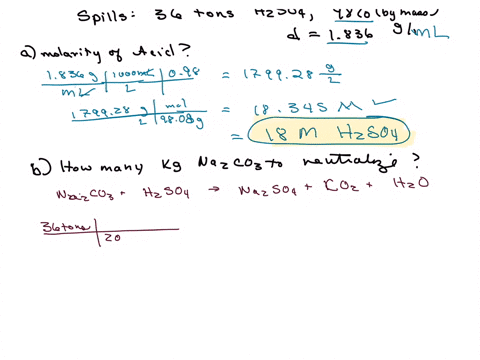 Spills: 36 tons H2SO4, 98% (by mass)
d = 1.836 g/mL
a) molarity of Acid?
1.836 g | 1000 mL | 0.98 = 1799.28 g/L
mL | L
1799.28 g | mol = 18.345 M ✓
L | 98.08 g
= 18 M H2SO4
b) How many Kg Na2CO3 to neutralize?
Na2CO3 + H2SO4 → Na2SO4 + CO2 + H2O
36 tons |
20